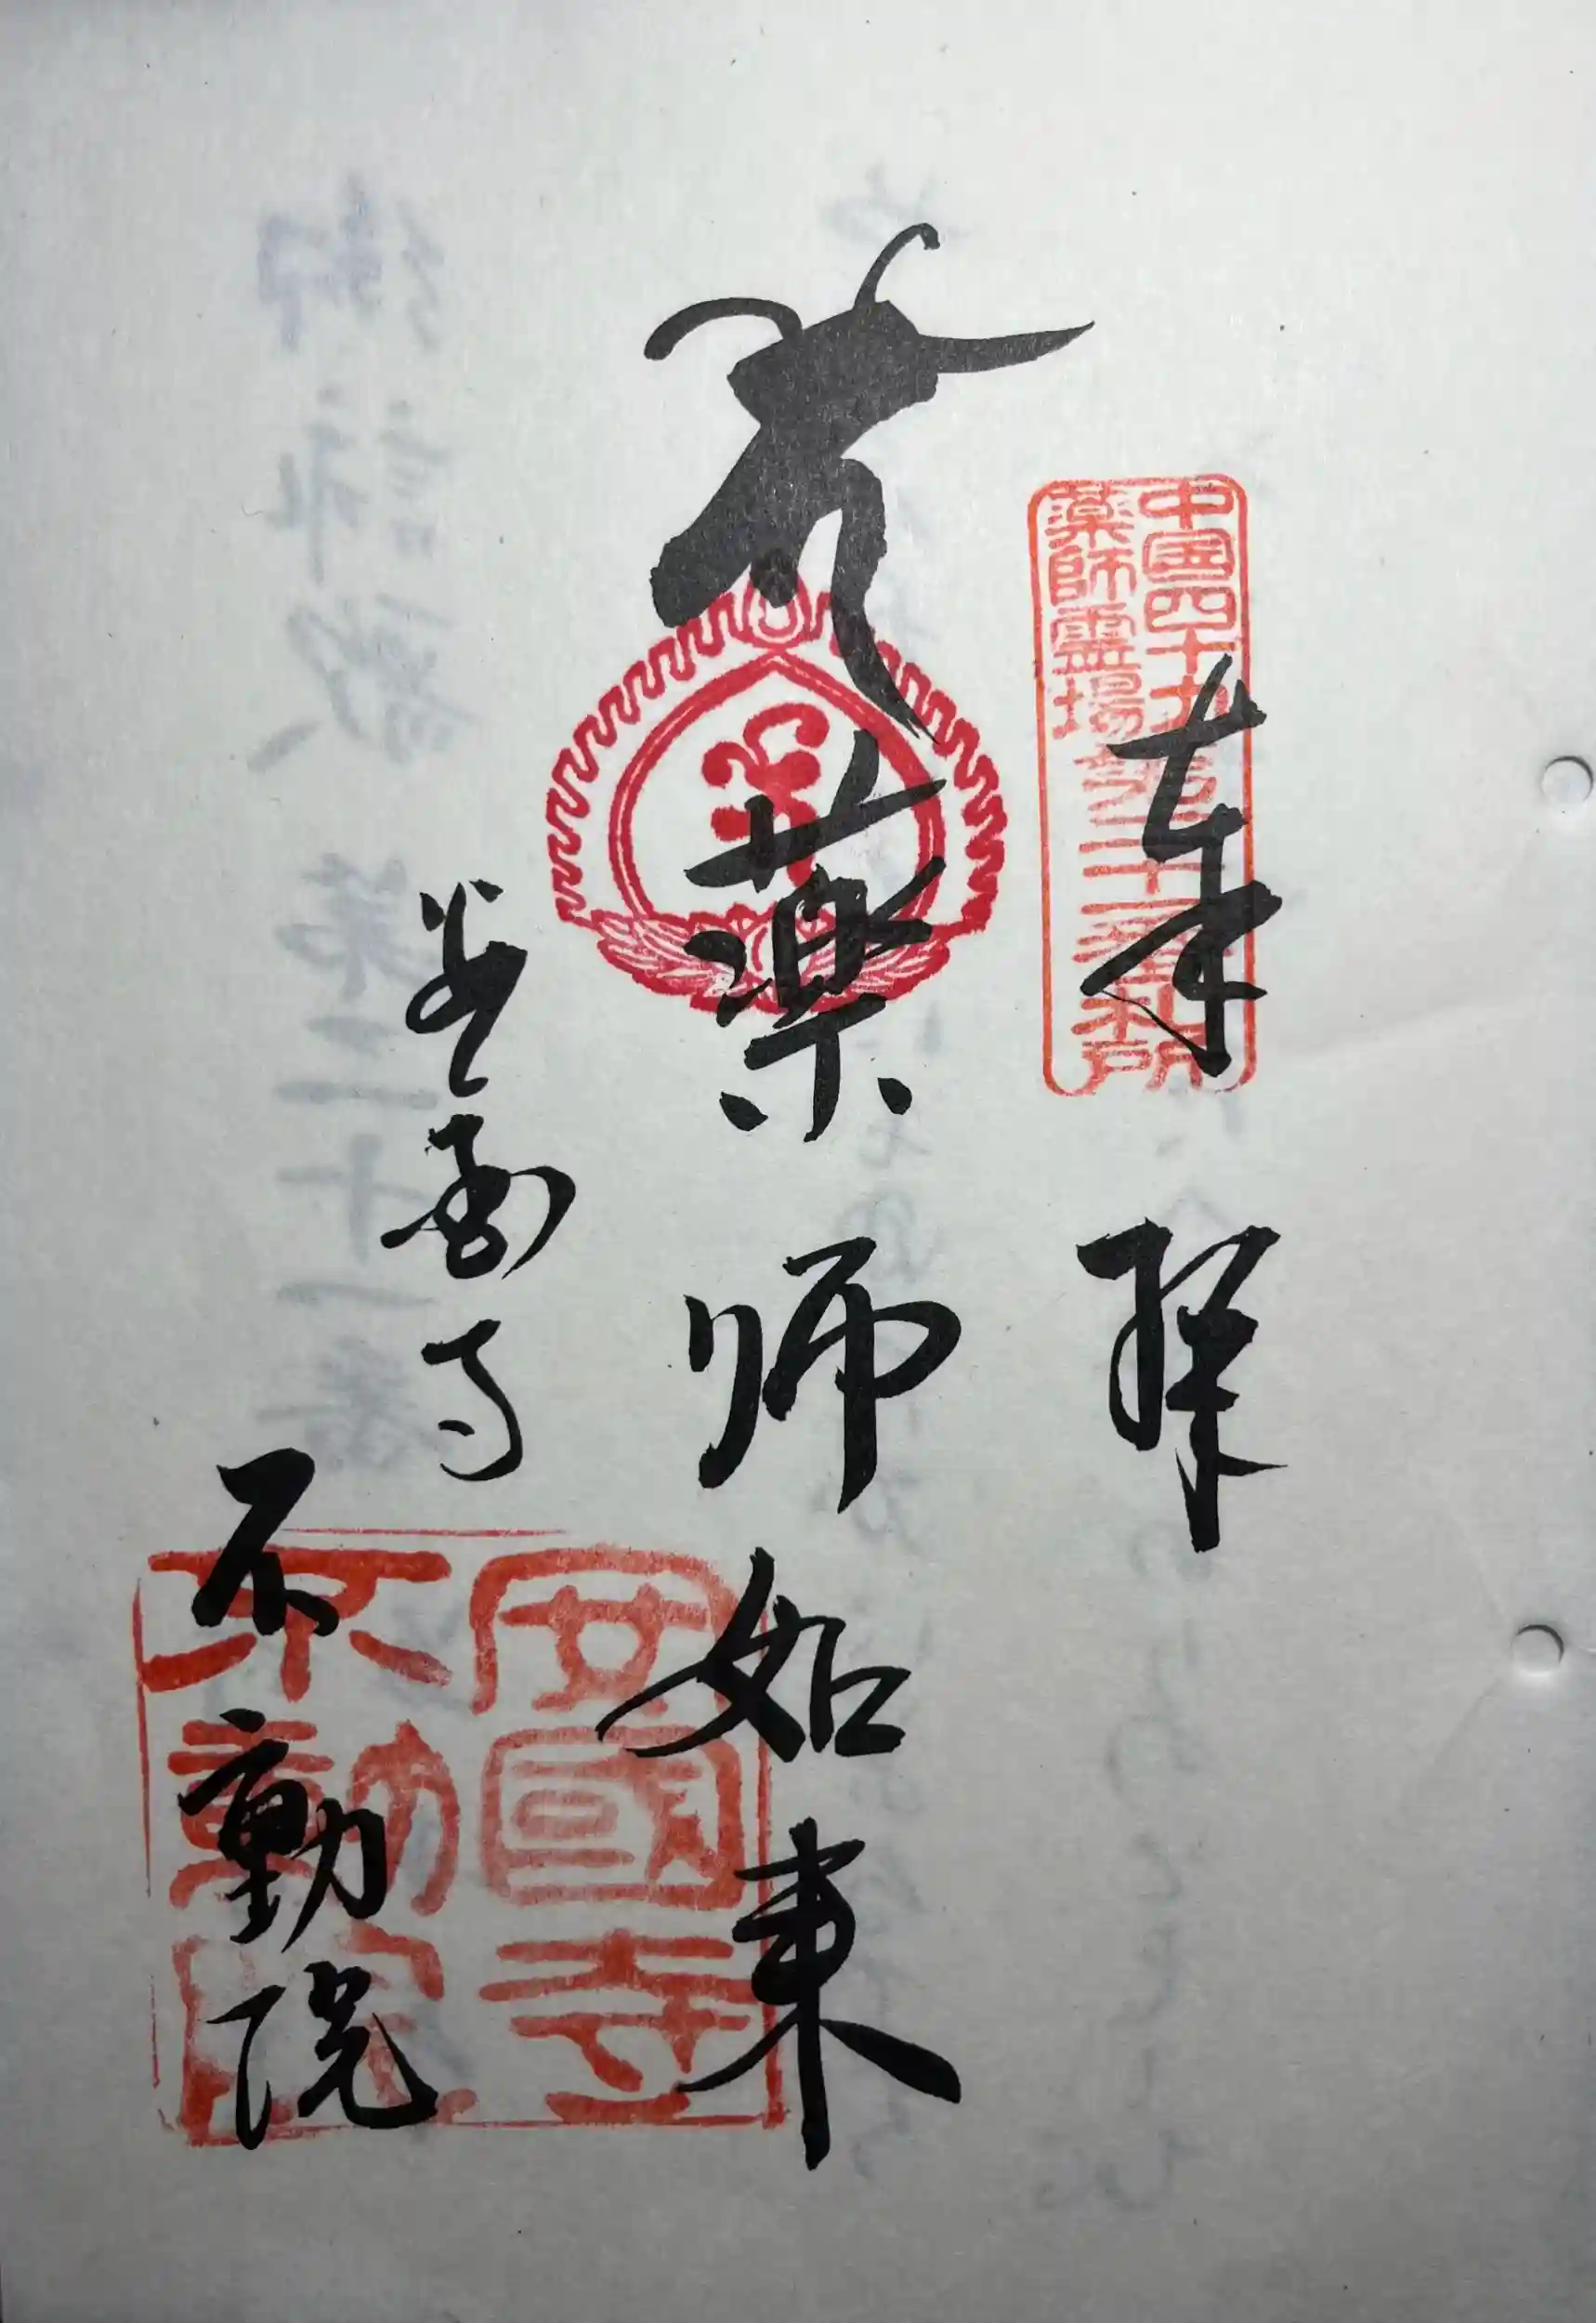 奉拝
中国四十九
薬師霊場
第二十二番札所
薬師如来
安国寺
不動院
安國寺
不動院